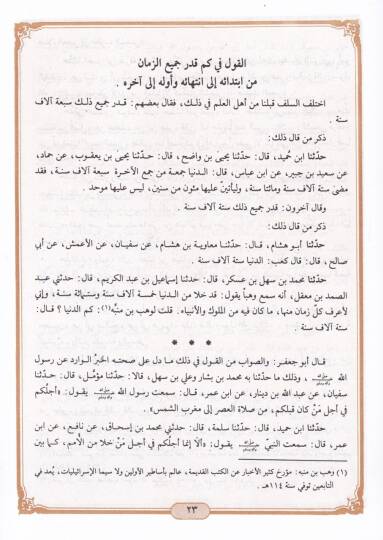 القول في كم قدر جميع الزمان
من ابتدائه إلى انتهائه وأوله إلى آخره .
اختلف السلف قبلنا من أهل العلم في ذلك، فقال بعضهم: قدر جميع ذلك سبعة آلاف
سنة .
ذكر من قال ذلك:
حدّثنا ابن حُميد، قال: حدّثنا يحيىٰ بن واضح، قال: حدّثنا يحيىٰ بن يعقوب، عن حماد،
عن سعيد بن جبير، عن ابن عباس، قال: الدنيا جمعة من جمع الآخرة سبعة آلاف سنة، فقد
مضىٰ ستة آلاف سنة ومائتا سنة، وليأتينّ عليها مئون من سنين، ليس عليها موحد .
وقال آخرون: قدر جميع ذلك ستة آلاف سنة .
ذكر من قال ذلك:
حدّثنا أبو هشام، قال: حدّثنا معاوية بن هشام، عن سفيان، عن الأعمش، عن أبي
صالح، قال: قال كعب: الدنيا ستة آلاف سنة .
حدّثنا محمد بن سهل بن عسكر، قال: حدثنا إسماعيل بن عبد الكريم، قال: حدثني عبد
الصمد بن معقل، أنه سمع وهباً يقول: قد خلا من الدنيا خمسة آلاف سنة وستمائة سنة، وإني
لأعرف كلّ زمان منها، ما كان فيه من الملوك والأنبياء. قلت لوهب بن منبِّه(١): كم الدنيا ؟ قال:
ستة آلاف سنة .
* * *
قال أبو جعفر: والصواب من القول في ذلك ما دل على صحته الخبرُ الوارد عن رسول
الله ﷺ، وذلك ما حدّثنا به محمد بن بشار وعلي بن سهل، قالا: حدّثنا مؤمَّل، قال: حدّثنا
سفيان، عن عبد الله بن دينار، عن ابن عمر، قال: سمعت رسول الله ﷺ يقول: «أجلُكم
في أجل مَنْ كان قبلكم، من صلاة العصر إلى مغرب الشمس» .
حدّثنا ابن حميد، قال: حدّثنا سلمة، قال: حدثني محمد بن إسحاق، عن نافع، عن ابن
عمر، قال: سمعت النبيّ ﷺ يقول: «ألا إنما أجلُكم في أجل مَنْ خلا من الأمم، كما بين
(١) وهب بن منبه: مؤرخ كثير الأخبار عن الكتب القديمة، عالم بأساطير الأولين ولا سيما الإسرائيليات، يُعد في
التابعين توفي سنة ١١٤هـ .
٢٣